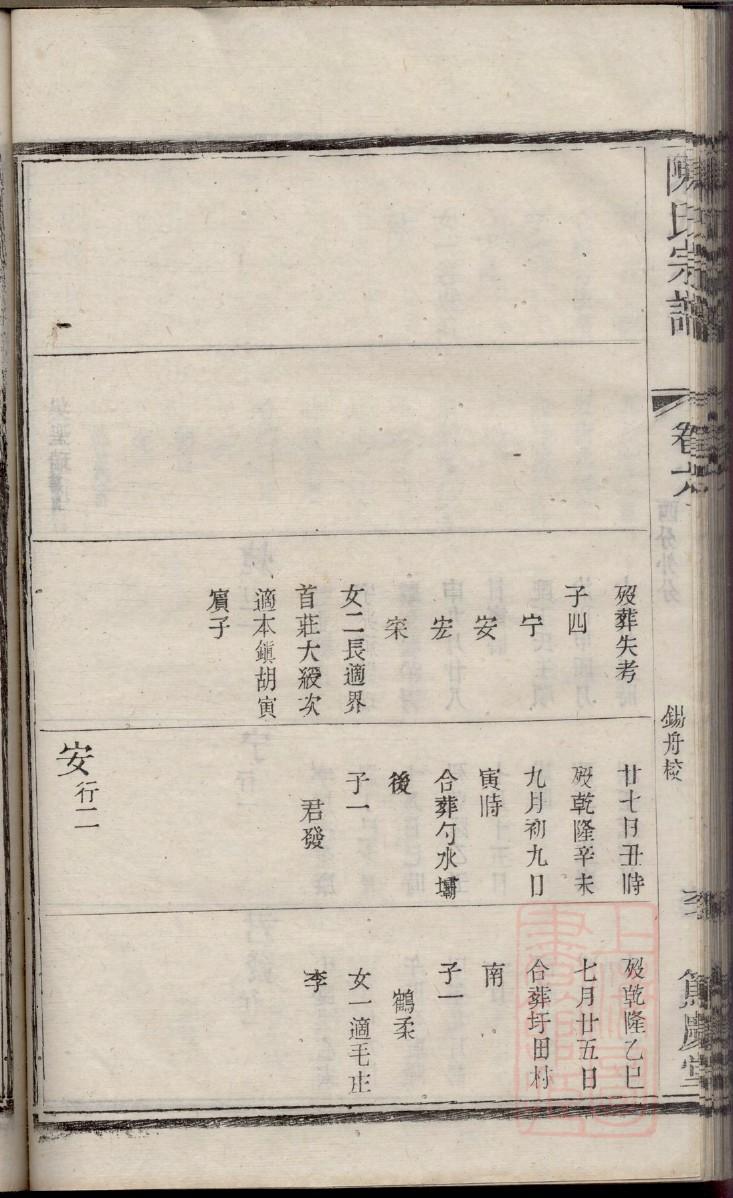 陳氏宗譜
卷六
錫舟校
篤慶堂
歿葬失考
子四
宁
安
宏
宋
女二長適界
首莊大綬次
適本鎭胡寅
賔子
廿七日丑時
歿乾隆辛未
九月初九日
寅時
合葬勺水壩
後
子一
君發
安行二
歿乾隆乙巳
七月廿五日
合葬圩田村
南
子一
鶴柔
女一適毛庄
李